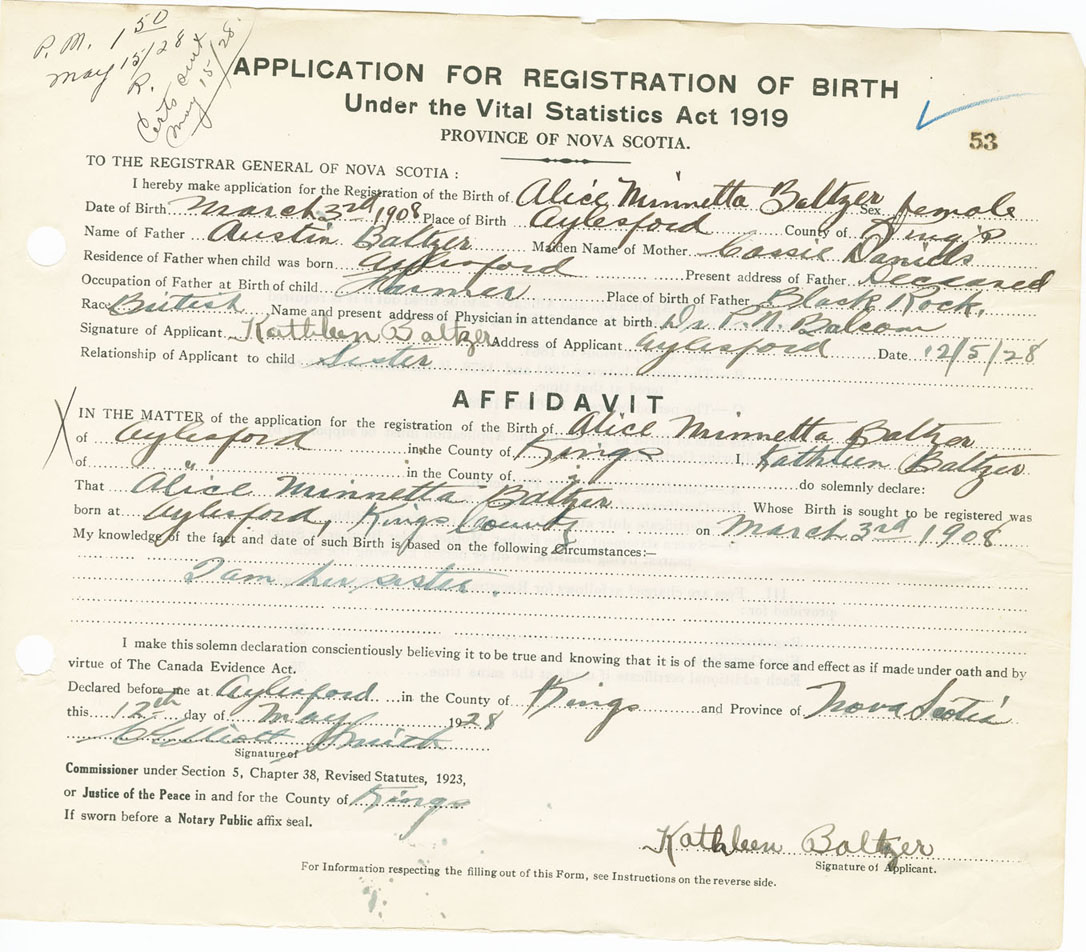 P. M. 1 50
May 15/28
R.
Certs sent
May 15/28
APPLICATION FOR REGISTRATION OF BIRTH
Under the Vital Statistics Act 1919
PROVINCE OF NOVA SCOTIA.
53
TO THE REGISTRAR GENERAL OF NOVA SCOTIA :
I hereby make application for the Registration of the Birth of Alice Minnetta Baltzer Sex female
Date of Birth March 3rd 1908 Place of Birth Aylesford County of King's
Name of Father Austin Baltzer Maiden Name of Mother Cassie Daniels
Residence of Father when child was born Aylesford Present address of Father Deceased
Occupation of Father at Birth of child Farmer Place of birth of Father Black Rock.
Race British Name and present address of Physician in attendance at birth Dr P. N. Balcom
Signature of Applicant Kathleen Baltzer Address of Applicant Aylesford Date 12/5/28
Relationship of Applicant to child Sister
AFFIDAVIT
X
IN THE MATTER of the application for the registration of the Birth of Alice Minnetta Baltzer
of Aylesford in the County of Kings I Kathleen Baltzer
of in the County of do solemnly declare:
That Alice Minnetta Baltzer Whose Birth is sought to be registered was
born at Aylesford, Kings County on March 3rd 1908
My knowledge of the fact and date of such Birth is based on the following Circumstances:—
I am her sister.
I make this solemn declaration conscientiously believing it to be true and knowing that it is of the same force and effect as if made under oath and by
virtue of The Canada Evidence Act.
Declared before me at Aylesford in the County of Kings and Province of Nova Scotia
this 12th day of May 1928
Smith
Signature of
Commissioner under Section 5, Chapter 38, Revised Statutes, 1923,
or Justice of the Peace in and for the County of Kings
If sworn before a Notary Public affix seal.
Kathleen Baltzer
Signature of Applicant.
For Information respecting the filling out of this Form, see Instructions on the reverse side.